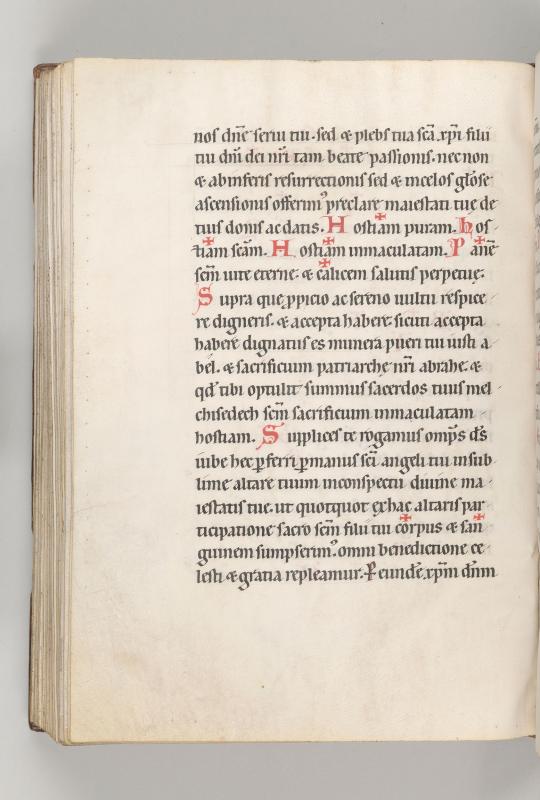 nos dñe serui tui. sed & plebs tua scã. xp̃i filii
tui dñi dei nr̃i tam beate passionis. nec non
& ab inferis resurrectionis sed & in celos gl̃ose
ascensionis offerim᷒ preclare maiestati tue de
tuis donis ac datis. H ostiam ✠ puram. h os
tiam ✠ scãm. H ostiam ✠ inmaculatam. P ✠ anẽ
scm̃ uite eterne. & ✠ calicem salutis perpetue.
S upra que ꝓpicio ac sereno uultu respice
re digneris. & accepta habere. sicuti accepta
habere dignatus es munera pueri tui iusti a
bel. & sacrificium patriarche nr̃i abrahe. &
qd̃ tibi optulit summus sacerdos tuus mel
chisedech scm̃ sacrificium inmaculatam
hostiam. S upplices te rogamus omp̃s d̃s
iube hec ꝑferri ꝑ manus sc̃i angeli tui in sub
lime altare tuum in conspectu diuine ma
iestatis tue. ut quotquot ex hac altaris par
ticipatione sacro scm̃ filii tui ✠ corpus & san ✠
guinem sumpserim᷒. omni benedictione ce
lesti & gratia repleamur. P eundẽ xp̃m dñm